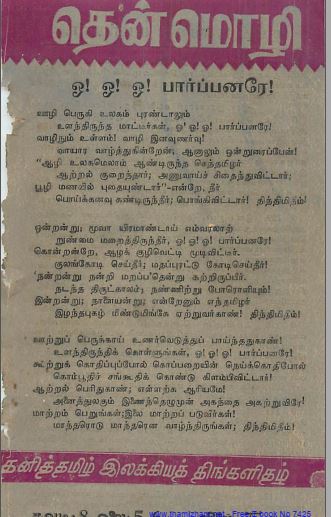 தென்மொழி
ஓ! ஓ! ஓ! பார்ப்பனரே!
ஊழி பெருகி உலகம் புரண்டாலும்
உளந்திருந்த மாட்டீர்கள், ஓ! ஓ! ஓ! பார்ப்பனரே!
வாழிநும் உள்ளம்! வாழி இனவுணர்வு!
வாயார வாழ்த்துகின்றேன்; ஆனாலும் ஒன்றுரைப்பேன்!
"ஆழி உலகமெலாம் ஆண்டிருந்த செந்தமிழர்
ஆற்றல் குறைந்தார்; அணுவாய்ச் சிதைந்துவிட்டார்;
பூழி மணலில் புதையுண்டார்"-என்றே, நீர்
பொய்க்கனவு கண்டிருந்தீர்; பொங்கிவிட்டார்! தித்திமிதீம்!
ஒன்றன்று; மூவா யிரமாண்டாய் எம்வரலாற்
றுண்மை மறைத்திருந்தீர், ஓ! ஓ! ஓ! பார்ப்பனரே!
கொன்றன்றே, ஆழக் குழிவெட்டி மூடிவிட்டீர்.
குலங்கோடி செய்தீர்; மதப்புரட்டு கோடிசெய்தீர்!
'நன்றன்று நன்றி மறப்ப'தென்று கூற்றிருப்பீர்.
நடந்த திருட்காலம்; நண்ணிற்று பேரொளியும்!
இன்றன்று; நாளையன்று; என்றேனும் எந்தமிழர்
இழந்தபுகழ் மீண்டுமிங்கே ஏற்றுவர்காண்! தித்திமிதீம்!
ஊற்றுப் பெருக்காய் உணர்வெடுத்துப் பாய்ந்ததுகாண்!
உளந்திருந்திக் கொள்ளுங்கள், ஓ! ஓ! ஓ! பார்ப்பனரே!
கூற்றுக் கொதிப்புப்போல் கொப்பறையின் நெய்க்கொதிபோல்
கொம்பூதிச் சங்கூதிக் கொண்டு கிளம்பிவிட்டார்!
ஆற்றல் பெரிதுகாண்; என்னற்க ஆரியமே!
அனைத்துலகும் இணைந்தெழுமுன் அகந்தை அகற்றுவிரே!
மாற்றம் பெறுங்கள்;இலை மாற்றப் படுவீர்கள்!
மாந்தரொடு மாந்தரென வாழ்ந்திருங்கள்; தித்திமிதீம்!
தனித்தமிழ் இலக்கியத் திங்களிதழ்
www.thamizham.net - Free E book No 7425